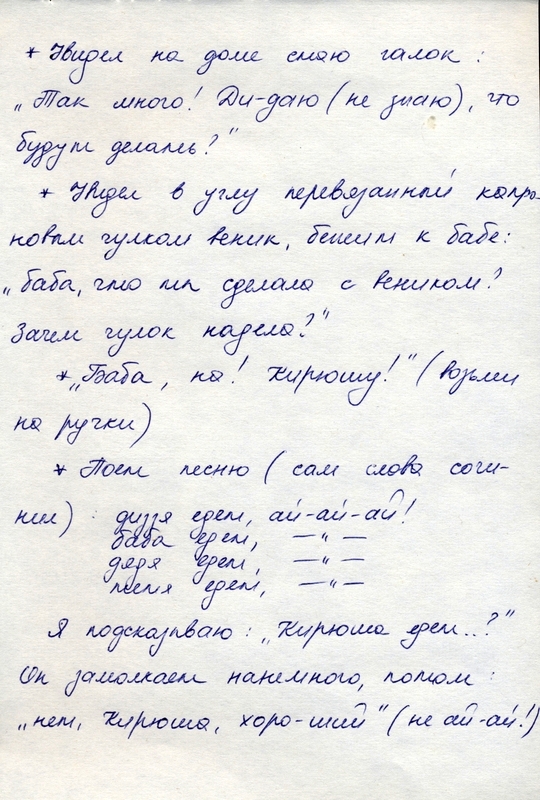 * Увидел на доме стаю галок :
„Так много! Ди-даю (не знаю), что
будут делать?"
* Увидел в углу перевязанный капро-
новым чулком веник, бежит к бабе:
„баба, что ты сделала с веником?
Зачем чулок надела?"
* „Баба, на! Кирюшу!" (возьми
на ручки)
* Поет песню (сам слова сочи-
нил) : дизя едет, ай-ай-ай!
баба едет, —"—
дядя едет, —"—
тетя едет, —"—
Я подсказываю : „Кирюша едет..?"
Он замолкает ненемного, потом :
„нет, Кирюша, хоро-ший" (не ай-ай!)